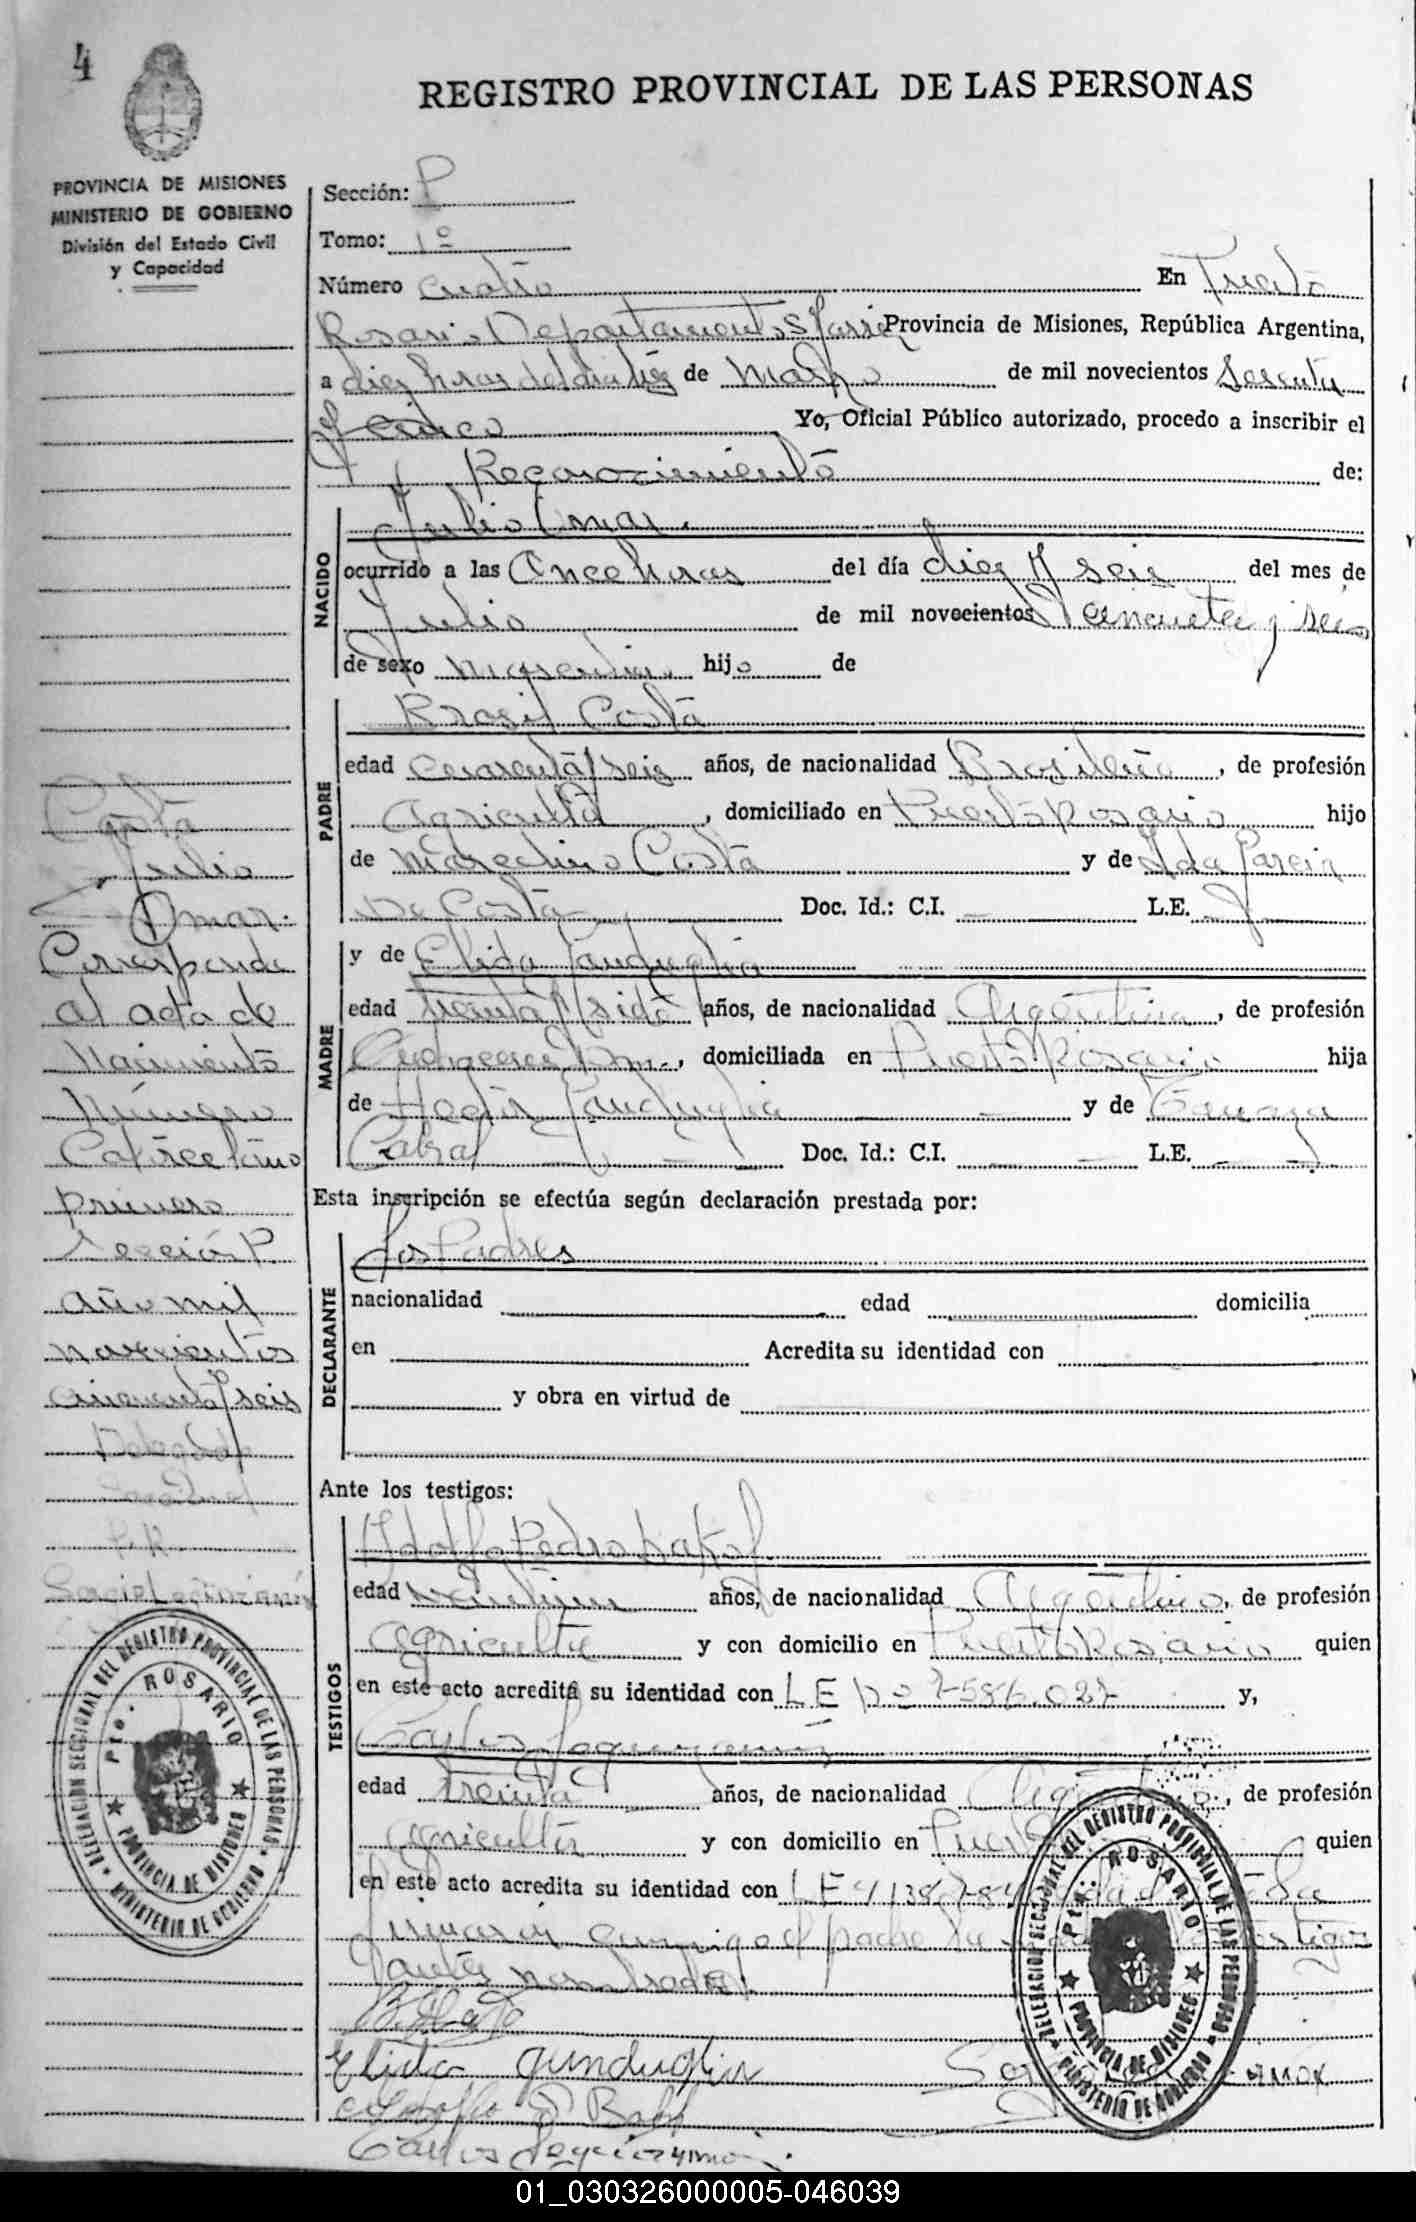 4
REGISTRO PROVINCIAL DE LAS PERSONAS
PROVINCIA DE MISIONES
MINISTERIO DE GOBIERNO
División del Estado Civil
y Capacidad
Sección: P
Tomo: 1º
Número cuatro En Puerto
Rosario Departamento Provincia de Misiones, República Argentina,
a diez horas del dia de Marzo de mil novecientos Sesenta
y cinco Yo, Oficial Público autorizado, procedo a inscribir el
Reconocimiento de:
NACIDO
Julio Omar.
ocurrido a las Once horas del día diez y seis del mes de
Julio de mil novecientos cincuenta y seis
de sexo masculino hijo de
PADRE
Brasil Costa
edad cuarenta y seis años, de nacionalidad Brasileña, de profesión
Agricultor, domiciliado en Puerto Rosario hijo
de Marcelino Costa y de Ilda Garcia
De Costa Doc. Id.: C.I. — L.E.
MADRE
y de Elida Gunduglia
edad treinta y años, de nacionalidad Argentina, de profesión
domiciliada en Puerto Rosario hija
de Gunduglia y de
Cabral Doc. Id.: C.I. — L.E. —
Esta inscripción se efectúa según declaración prestada por:
DECLARANTE
Los Padres
nacionalidad edad domicilia
en Acredita su identidad con
y obra en virtud de
Ante los testigos:
TESTIGOS
Adolfo Pedro
edad años, de nacionalidad Argentino, de profesión
Agricultor y con domicilio en Puerto Rosario quien
en este acto acredita su identidad con L E No 7.586.027 y,
Carlos
edad treinta años, de nacionalidad de profesión
agricultor y con domicilio en quien
en este acto acredita su identidad con L E
firmaron conmigo el padre la testigos
antes nombrados.
Elida gunduglia
Carlos
Costa
Julio
Omar.
Corresponde
al acta de
Nacimiento
Número
Catorce tomo
primero
Sección P.
Año mil
novecientos
cincuenta y seis
DELEGACION SECCIONAL DEL REGISTRO PROVINCIAL DE LAS PERSONAS
MINISTERIO DE GOBIERNO
Pto. ROSARIO
PROVINCIA DE MISIONES
DELEGACION SECCIONAL DEL REGISTRO PROVINCIAL DE LAS PERSONAS
MINISTERIO DE GOBIERNO
Pto. ROSARIO
PROVINCIA DE MISIONES
01_030326000005-046039